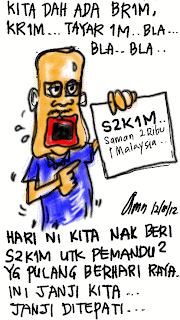 KITA DAH ADA BR1M,
KR1M... TAYAR 1M.. BLA...
BLA.. BLA..
S2K1M..
Saman 2 Ribu
1 Malaysia..
12/8/12
HARI NI KITA NAK BERI
S2K1M UTK PEMANDU2
YG PULANG BERHARI RAYA.
INI JANJI KITA...
JANJI DITEPATI...